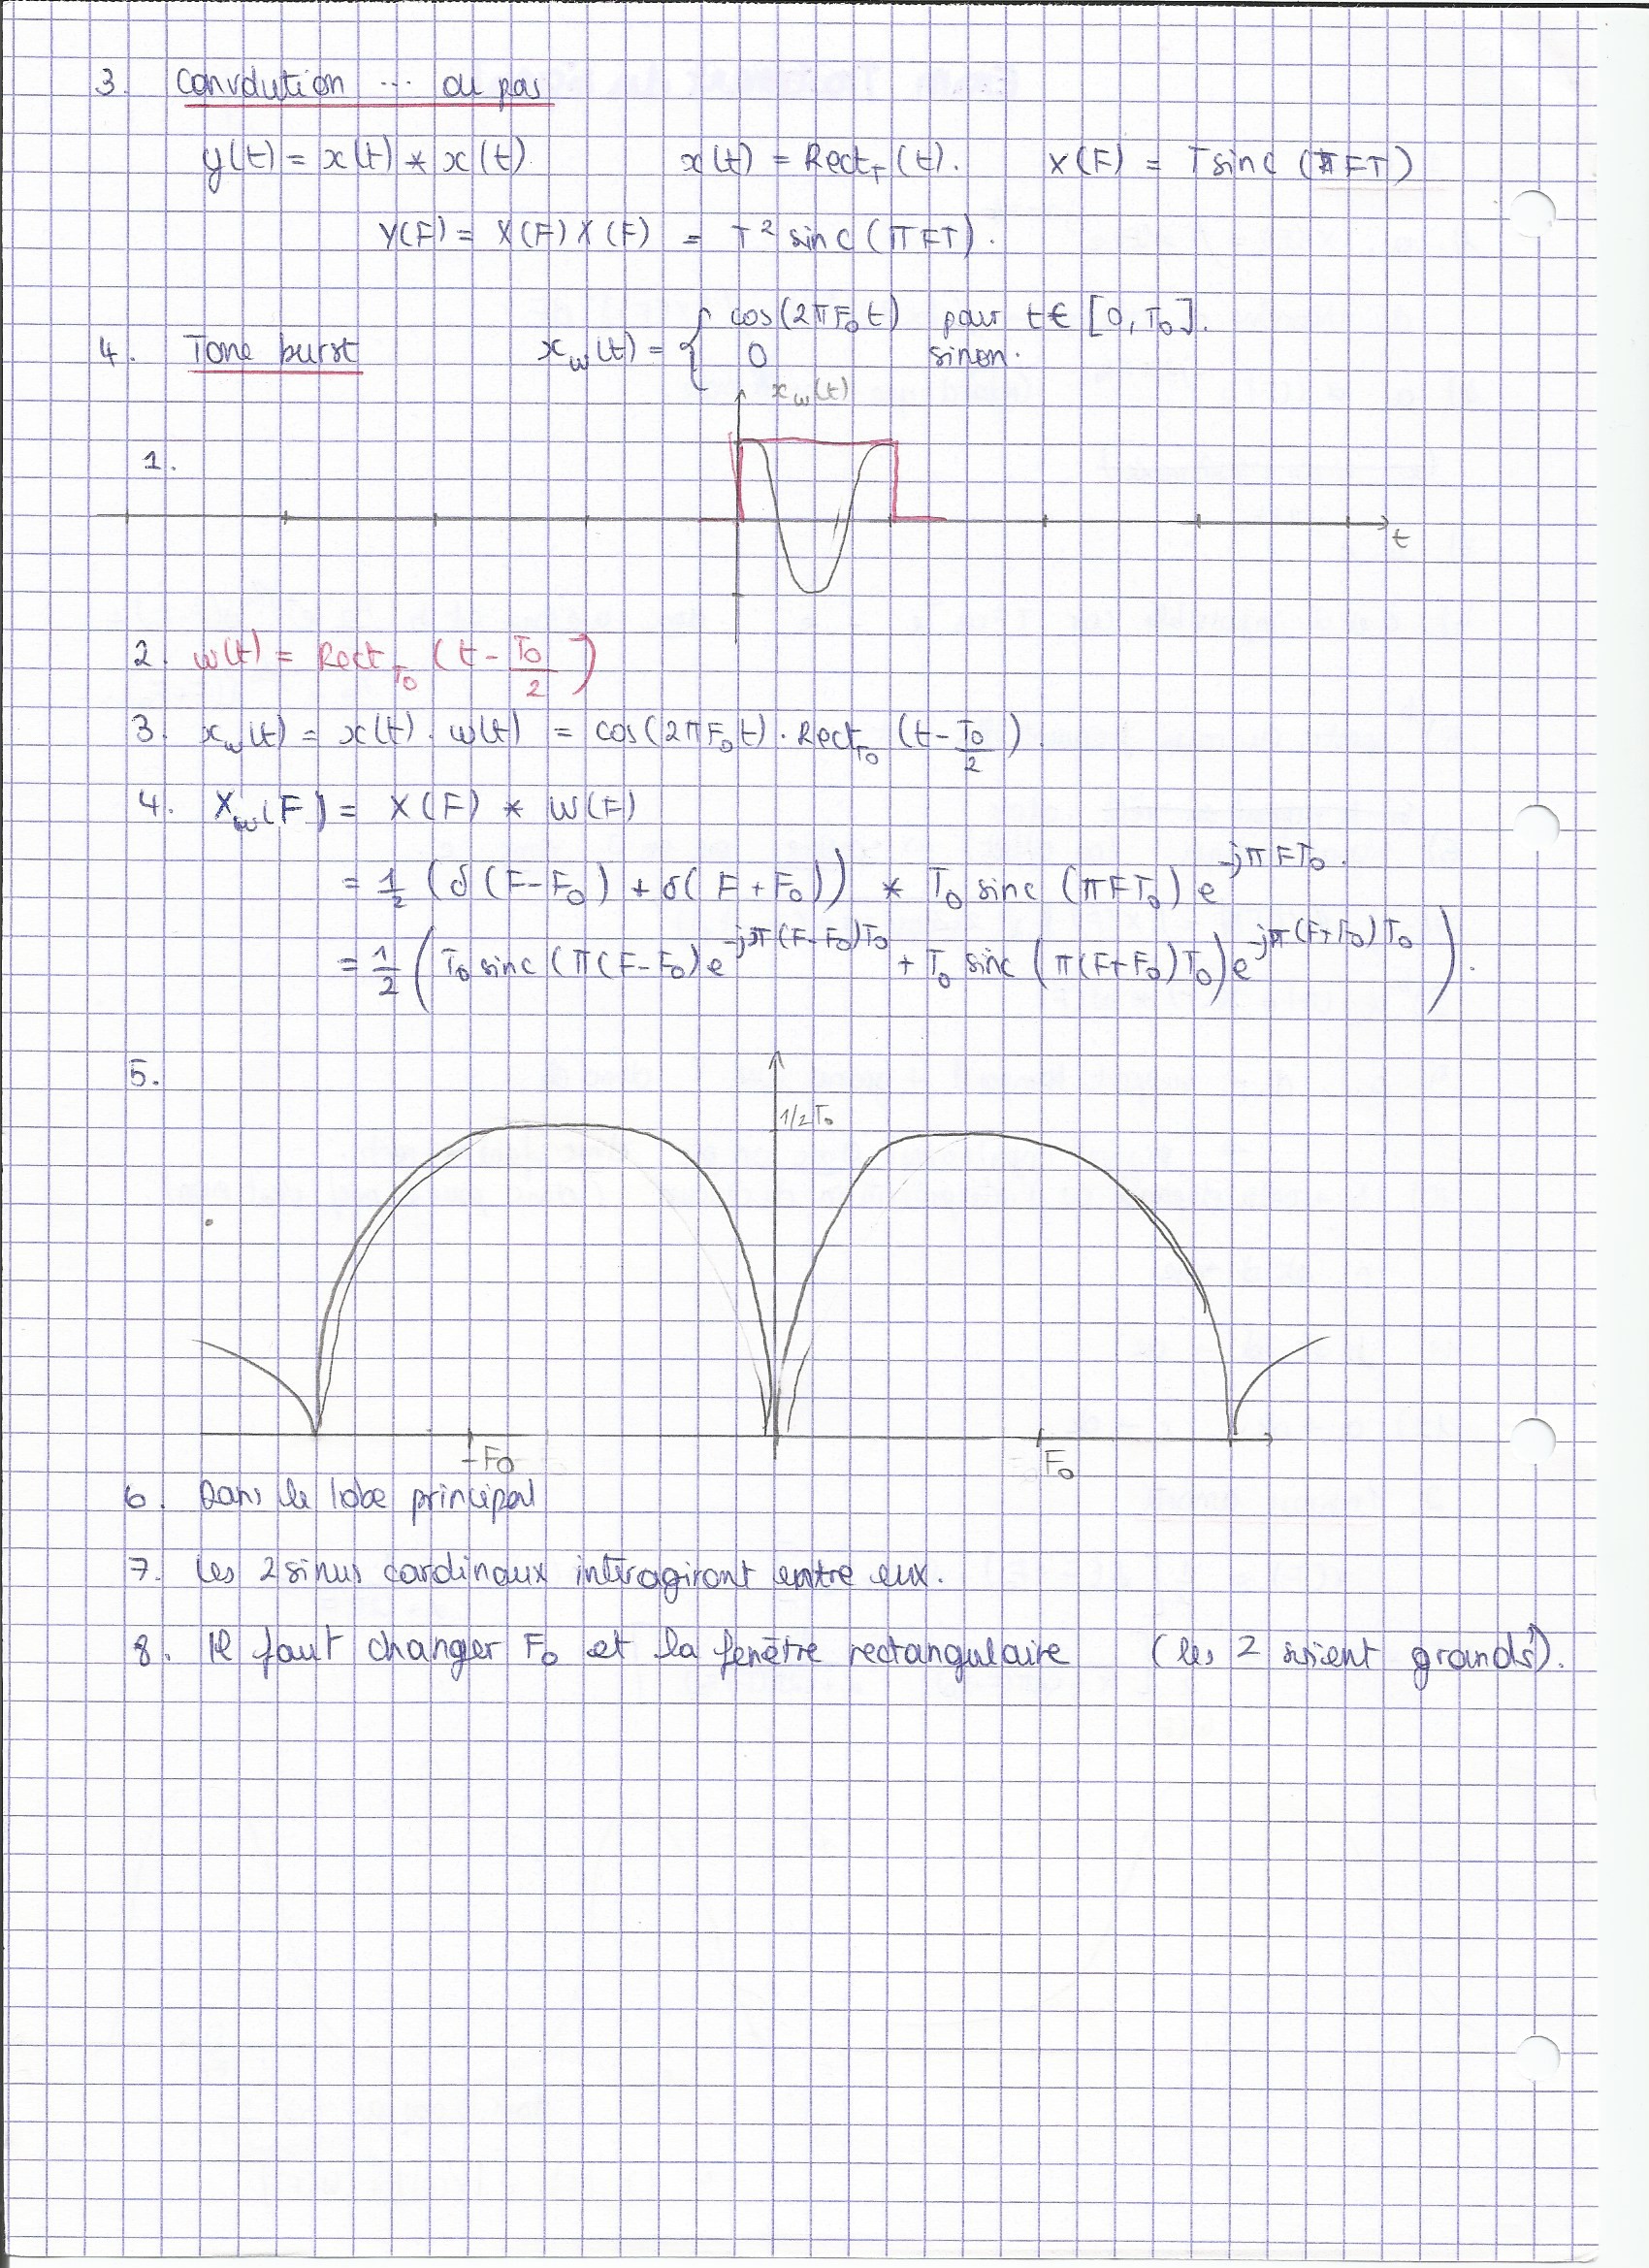 3. Convolution ... ou pas
y(t) = x(t) * x(t). x(t) = Rect_T(t). X(F) = T sinc (πFT)
Y(F) = X(F) X(F) = T² sinc (πFT).
4. Tone burst x_w(t) = { cos(2πF₀t) pour t ∈ [0, T₀].
0 sinon.
x_w(t)
1.
t
2. w(t) = Rect_T₀ (t - T₀/2)
3. x_w(t) = x(t) . w(t) = cos(2πF₀t) . Rect_T₀ (t - T₀/2).
4. X_w(F) = X(F) * W(F)
= 1/2 (δ(F-F₀) + δ(F+F₀)) * T₀ sinc (πFT₀) e^-jπFT₀.
= 1/2 (T₀ sinc (π(F-F₀) e^-jπ(F-F₀)T₀ + T₀ sinc (π(F+F₀)T₀) e^-jπ(F+F₀)T₀).
5.
1/2 T₀
-F₀ F₀
6. Dans le lobe principal
7. Les 2 sinus cardinaux intéragiront entre eux.
8. Il faut changer F₀ et la fenêtre rectangulaire (les 2 soient grands).